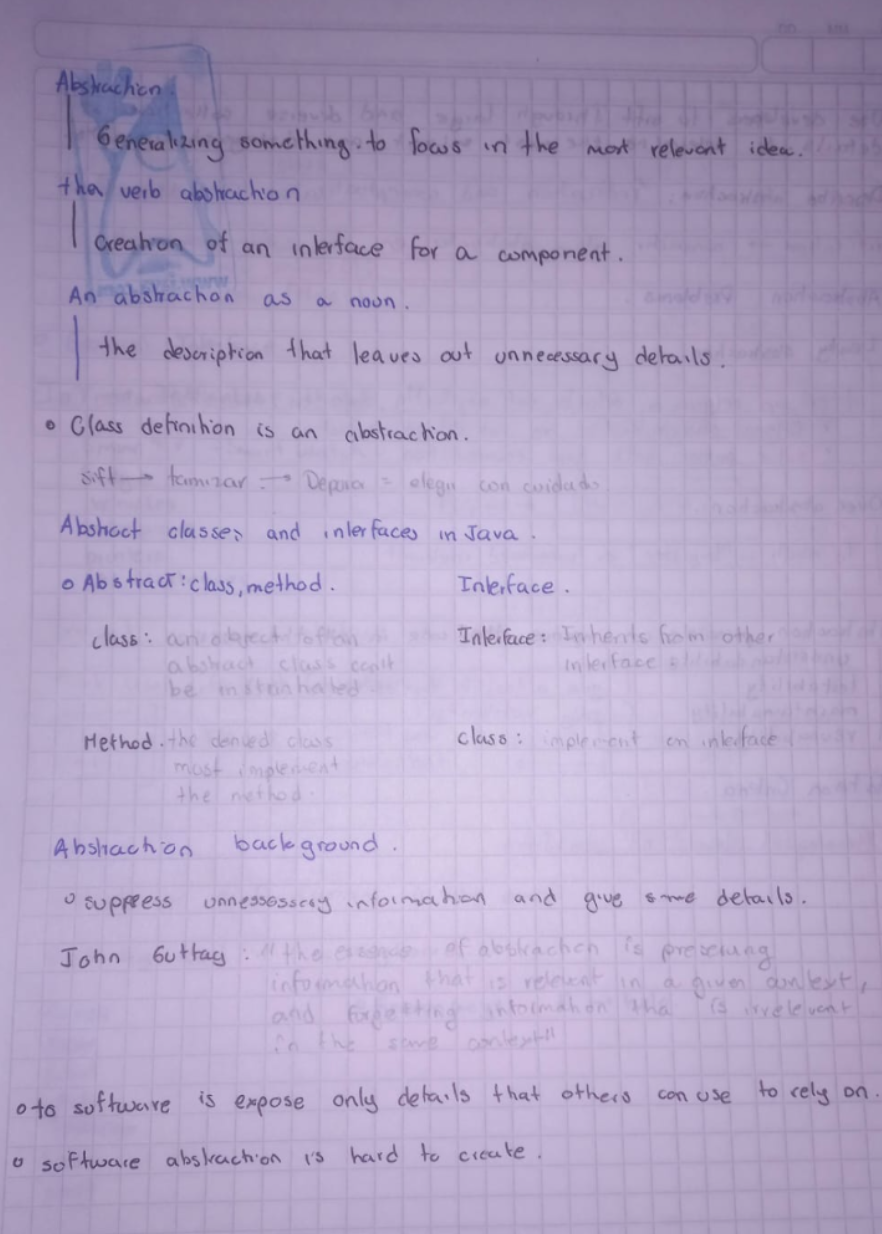 Abstraction.
Generalizing something to focus in the most relevant idea.
the verb abstraction
Creation of an interface for a component.
An abstraction as a noun.
the description that leaves out unnecessary details.
o Class definition is an abstraction.
sift → tamizar → Depurar = elegir con cuidado
Abstract classes and interfaces in Java.
o Abstract: class, method. Interface.
class: an object of an Interface: Inherits from other
abstract class can't interface
be instantiated
Method. the derived class class: implement an interface
most implement
the method.
Abstraction background.
o suppress unnessessary information and give some details.
John Guttag: "the essence of abstraction is preserving
information that is relevent in a given context,
and forgetting information tha is irrelevant
in the same context"
o to software is expose only details that others can use to rely on.
o software abstraction is hard to create.